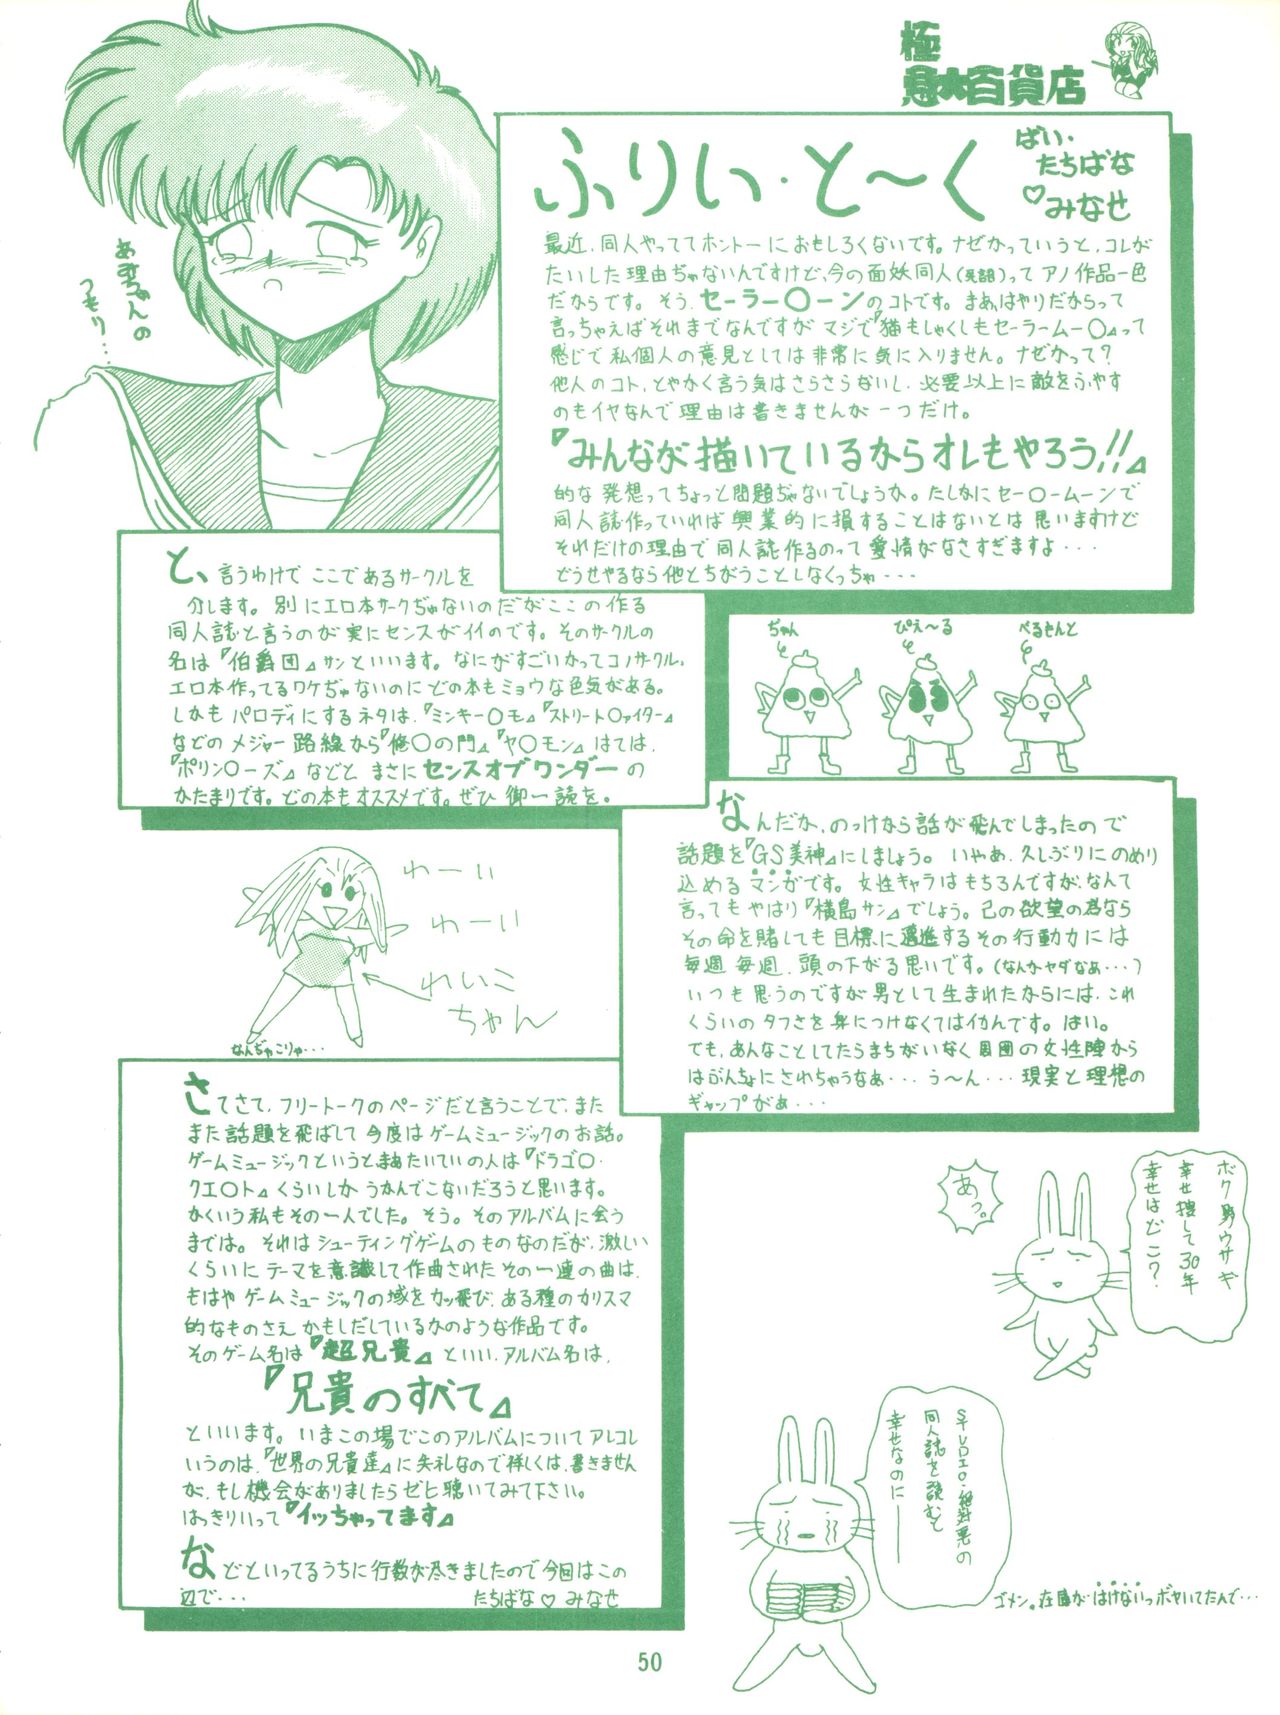 極
悪大百貨店
ふりい・と〜く
ばい・
たちばな
♡みなせ
あみちゃんの
つもり・・・
最近、同人やっててホントーにおもしろくないです。ナゼかっていうと、コレが
たいした理由ぢゃないんですけど、今の面妖同人(発語)ってアノ作品一色
だからです。そう、セーラー〇ーンのコトです。まぁ、はやりだからって
言っちゃえばそれまでなんですがマジで『猫もしゃくしもセーラームー〇』って
感じで私個人の意見としては非常に気に入りません。ナゼかって?
他人のコト、とやかく言う気はさらさらないし、必要以上に敵をふやす
のもイヤなんで理由は書きませんが一つだけ。
『みんなが描いているからオレもやろう!!』
的な発想ってちょっと問題ぢゃないでしょうか。たしかにセー〇ームーンで
同人誌作っていれば興業的に損することはないとは思いますけど
それだけの理由で同人誌作るのって愛情がなさすぎますよ・・・
どうせやるなら他とちがうことしなくっちゃ・・・
と、言うわけでここであるサークルを
介します。別にエロ本サークぢゃないのだがここの作る
同人誌と言うのが実にセンスがイイのです。そのサークルの
名は『伯爵団』サンといいます。なにがすごいかってコノサークル、
エロ本作ってるワケぢゃないのにどの本もミョウな色気がある。
しかもパロディにするネタは、『ミンキー〇モ』『ストリート〇ァイター』
などのメジャー路線から『修〇の門』『ヤ〇モン』はては、
『ポリン〇ーズ』などとまさにセンスオブワンダーの
かたまりです。どの本もオススメです。ぜひ御一読を。
ぢゃん
ぴえ〜る
べるもんと
なんだか、のっけから話が飛んでしまったので
話題を『GS美神』にしましょう。いやぁ、久しぶりにのめり
込めるマンガです。女性キャラはもちろんですが、なんて
言ってもやはり『横島サン』でしょう。己の欲望の為なら
その命を賭しても目標に邁進するその行動力には
毎週毎週、頭の下がる思いです。(なんかヤダなぁ・・・)
いつも思うのですが男として生まれたからには、これ
くらいのタフさを身につけなくてはイカんです。はい。
でも、あんなことしてたらまちがいなく周囲の女性陣から
はぶんちょにされちゃうなぁ・・・う〜ん・・・現実と理想の
ギャップがぁ・・・
わーい
わーい
れいこ
ちゃん
なんぢゃこりゃ・・・
さてさて、フリートークのページだと言うことで、また
また話題を飛ばして今度はゲームミュージックのお話。
ゲームミュージックというとまぁたいていの人は『ドラゴ〇・
クエ〇ト』くらいしかうかんでこないだろうと思います。
かくいう私もその一人でした。そう。そのアルバムに会う
までは。それはシューティングゲームのものなのだが、激しい
くらいにテーマを意識して作曲されたその一連の曲は、
もはやゲームミュージックの域をカッ飛び、ある種のカリスマ
的なものさえかもしだしているかのような作品です。
そのゲーム名は『超兄貴』といい、アルバム名は、
『兄貴のすべて』
といいます。いまこの場でこのアルバムについてアレコレ
いうのは、『世界の兄貴達』に失礼なので詳しくは、書きません
が、もし機会がありましたらゼヒ聴いてみて下さい。
はっきりいって『イッちゃってます』
などといってるうちに行数が尽きましたので今回はこの
辺で・・・ たちばな♡みなせ
ボク野ウサギ
幸せ捜して30年
幸せはどこ?
あっ。
STUDIO・絶対悪の
同人誌を読むと
幸せなのにー
ゴメン。在庫がはけないっボヤいてたんで・・・
50